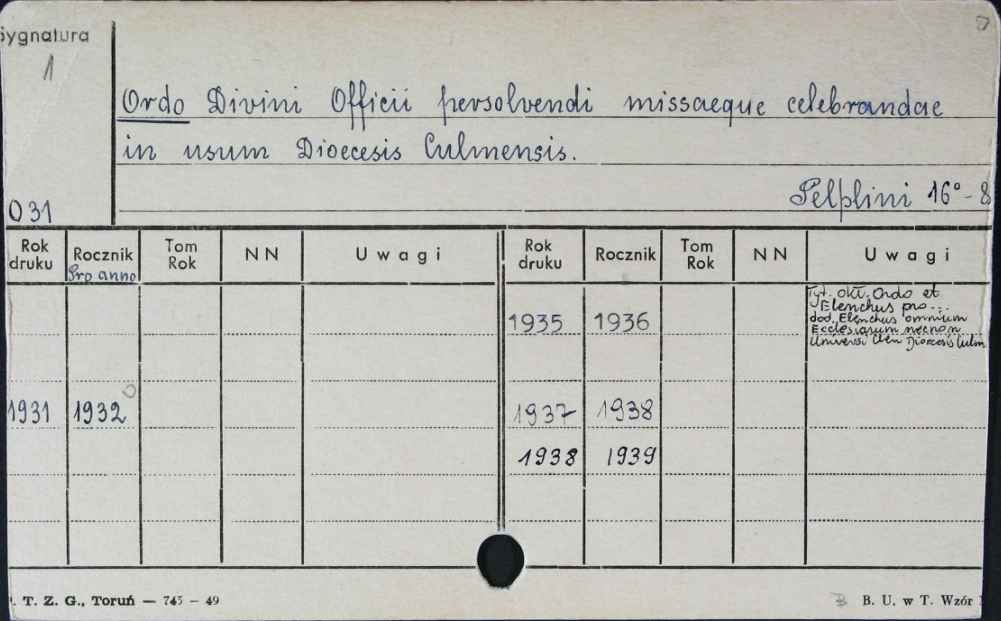 Sygnatura
1
Ordo Divini Officii persolvendi missaeque celebrandae
in usum Dioecesis Culmensis.
Pelplini 16° - 8
031
Rok druku Rocznik Pro anno Tom Rok NN Uwagi Rok druku Rocznik Tom Rok NN Uwagi
Tyt. okł. Ordo et
Elenchus pro...
1935 1936 dod. Elenchus omnium
Ecclesiarum necnon
Universi Cleri Dioecesis Culm
1931 1932 1937 1938
1938 1939
T. Z. G., Toruń — 745 - 49
B. U. w T. Wzór